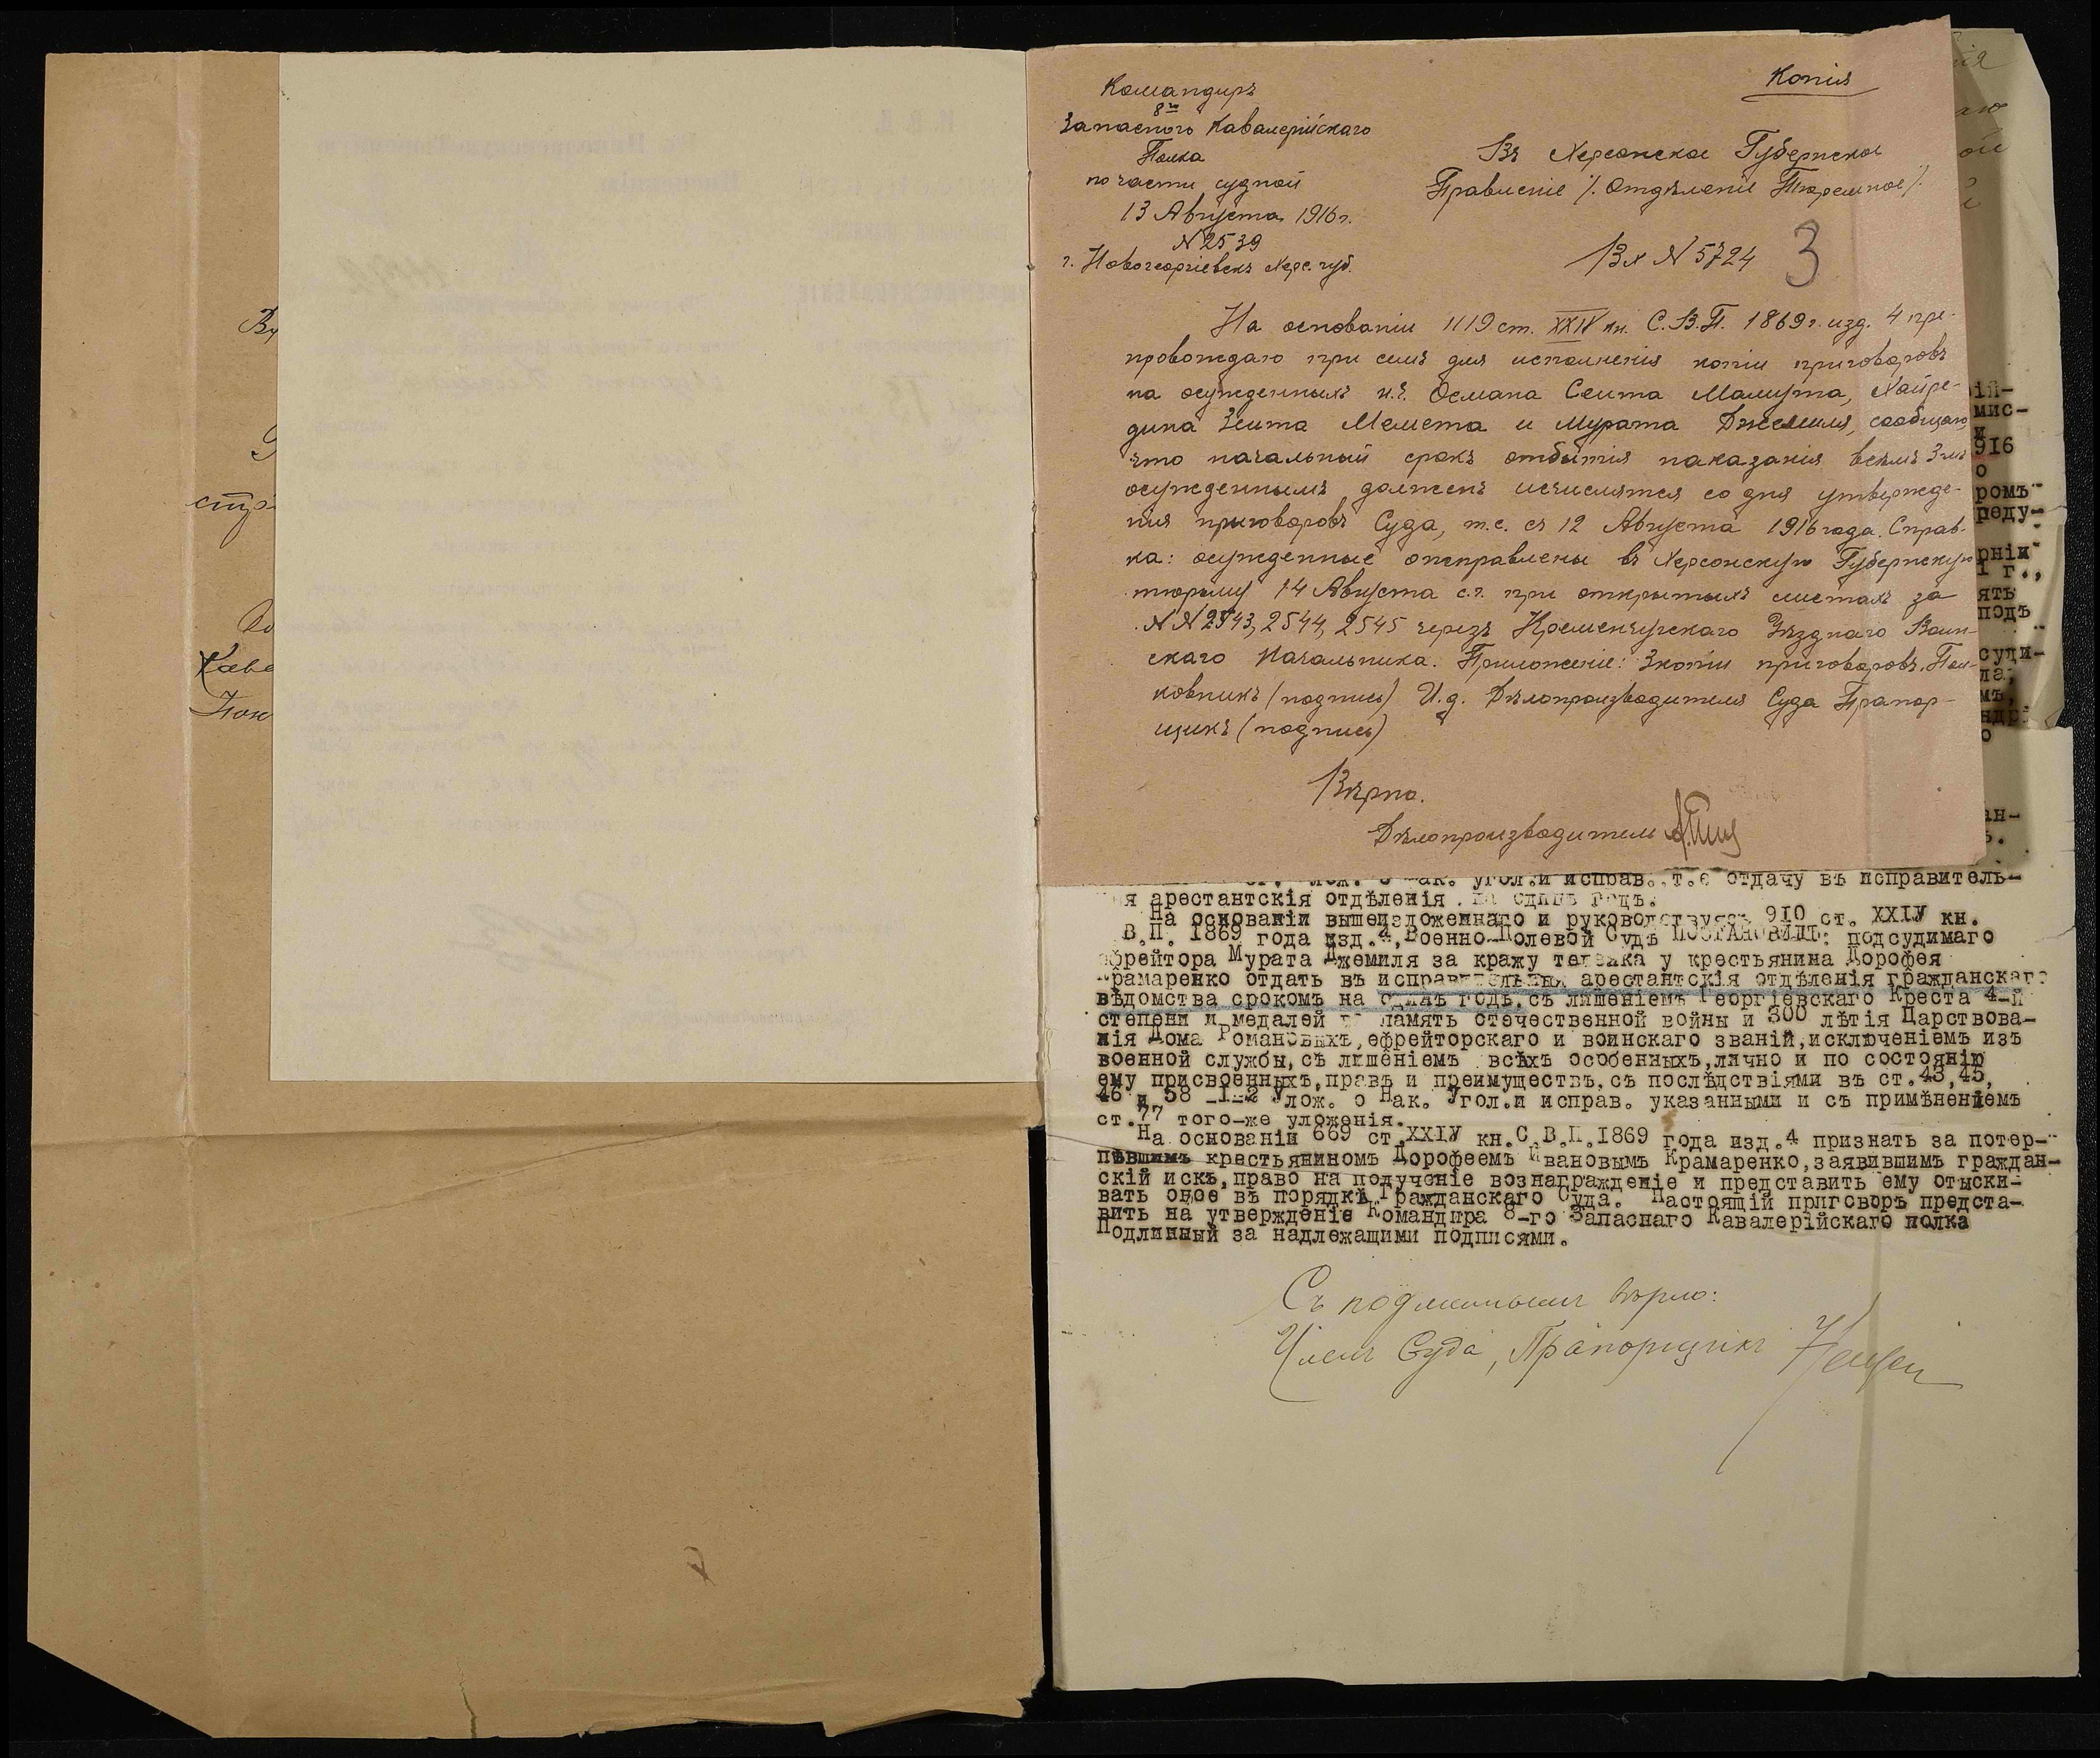 Копія
Командиръ
8го
Запасного Кавалерійскаго
Полка
по части судной
13 Августа 1916 г.
N 2539
г. Новогеоргіевскъ Херс. губ.
Въ Херсонское Губернское
Правленіе /. Отдѣленіе Тюремное /.
Вх N 5724
3
На основаніи 1119 ст. XXIV кн. С.В.П. 1869 г. изд. 4 пре-
провождаю при семъ для исполненія копіи приговоровъ
на осужденныхъ н.ч. Османа Сеита Мамута, Хайре-
дина Зеита Мемета и Мурата Джемиля, сообщаю,
что начальный срокъ отбытія наказанія всѣмъ 3мъ
осужденнымъ долженъ исчислятся со дня утвержде-
нія приговоровъ Суда, т.е. съ 12 Августа 1916 года. Справ-
ка: осужденные отправлены въ Херсонскую Губернскую
тюрьму 14 Августа с.г. при открытыхъ листахъ за
N N 2543, 2544, 2545 черезъ Кременчугскаго Уѣзднаго Воин-
скаго Начальника. Приложеніе: 3 копіи приговоровъ. Пол-
ковникъ (подпись) И.д. Дѣлопроизводителя Суда Прапор-
щикъ (подпись)
Вѣрно.
Дѣлопроизводитель
угол.и исправ..т.е отдачу въ исправитель-
я арестантскія отдѣленія. на одинъ годъ.
На основаніи вышеизложеннаго и руководствуясь 910 ст. XXIУ кн.
В.П. 1869 года изд.4,Военно-Полевой Судъ ПОСТАНОВИЛЪ: подсудимаго
ефрейтора Мурата Джемиля за кражу теленка у крестьянина Дорофея
Крамаренко отдать въ исправительныя арестантскія отдѣленія гражданскаго
вѣдомства срокомъ на одинъ годъ.съ лишеніемъ Георгіевскаго Креста 4-й
степени и медалей въ память отечественной войны и 300 лѣтія Царствова-
нія Дома Романовыхъ,ефрейторскаго и воинскаго званій,исключеніемъ изъ
военной службы,съ лишеніемъ всѣхъ особенныхъ,лично и по состоянію
ему присвоенныхъ,правъ и преимуществъ,съ послѣдствіями въ ст.43,45,
46 и 58 -1-2 Улож. о Нак. Угол.и исправ. указанными и съ примѣненіемъ
ст.77 того-же уложенія.
На основаніи 669 ст.XXIУ кн.С.В.П.1869 года изд.4 признать за потер-
пѣвшимъ крестьяниномъ Дорофеемъ Ивановымъ Крамаренко,заявившимъ граждан-
скій искъ,право на полученіе вознагражденіе и представить ему отыски-
вать оное въ порядкѣ Гражданскаго Суда. Настоящій приговоръ предста-
вить на утвержденіе Командира 8-го Запаснаго Кавалерійскаго полка
Подлинный за надлежащими подписями.
Съ подлиннымъ вѣрно:
Членъ Суда, Прапорщикъ